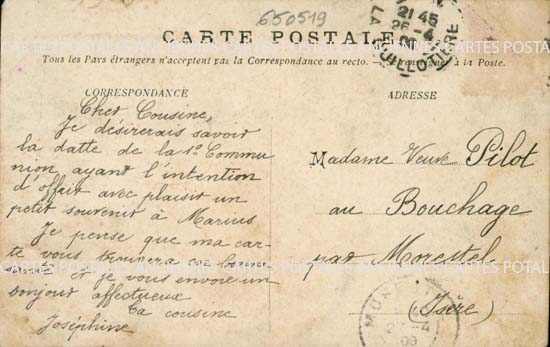 650519
CARTE POSTALE
Tous les Pays étrangers n'acceptent pas la Correspondance au recto. à la Poste.
21 45
26 - 4
LA GUILLOTIERE
CORRESPONDANCE
Cher Cousine,
Je désirerais savoir
la datte de la 1e Commu
nion ayant l'intention
d'offrir avec plaisir un
petit souvenir à Marius
Je pense que ma car-
te vous trouvera en bonne
santé et je vous envoie un
bonjour affectueux
ta cousine
Joséphine
ADRESSE
Madame Veuve Pilot
au Bouchage
par Morestel
(Isère)
-4
09